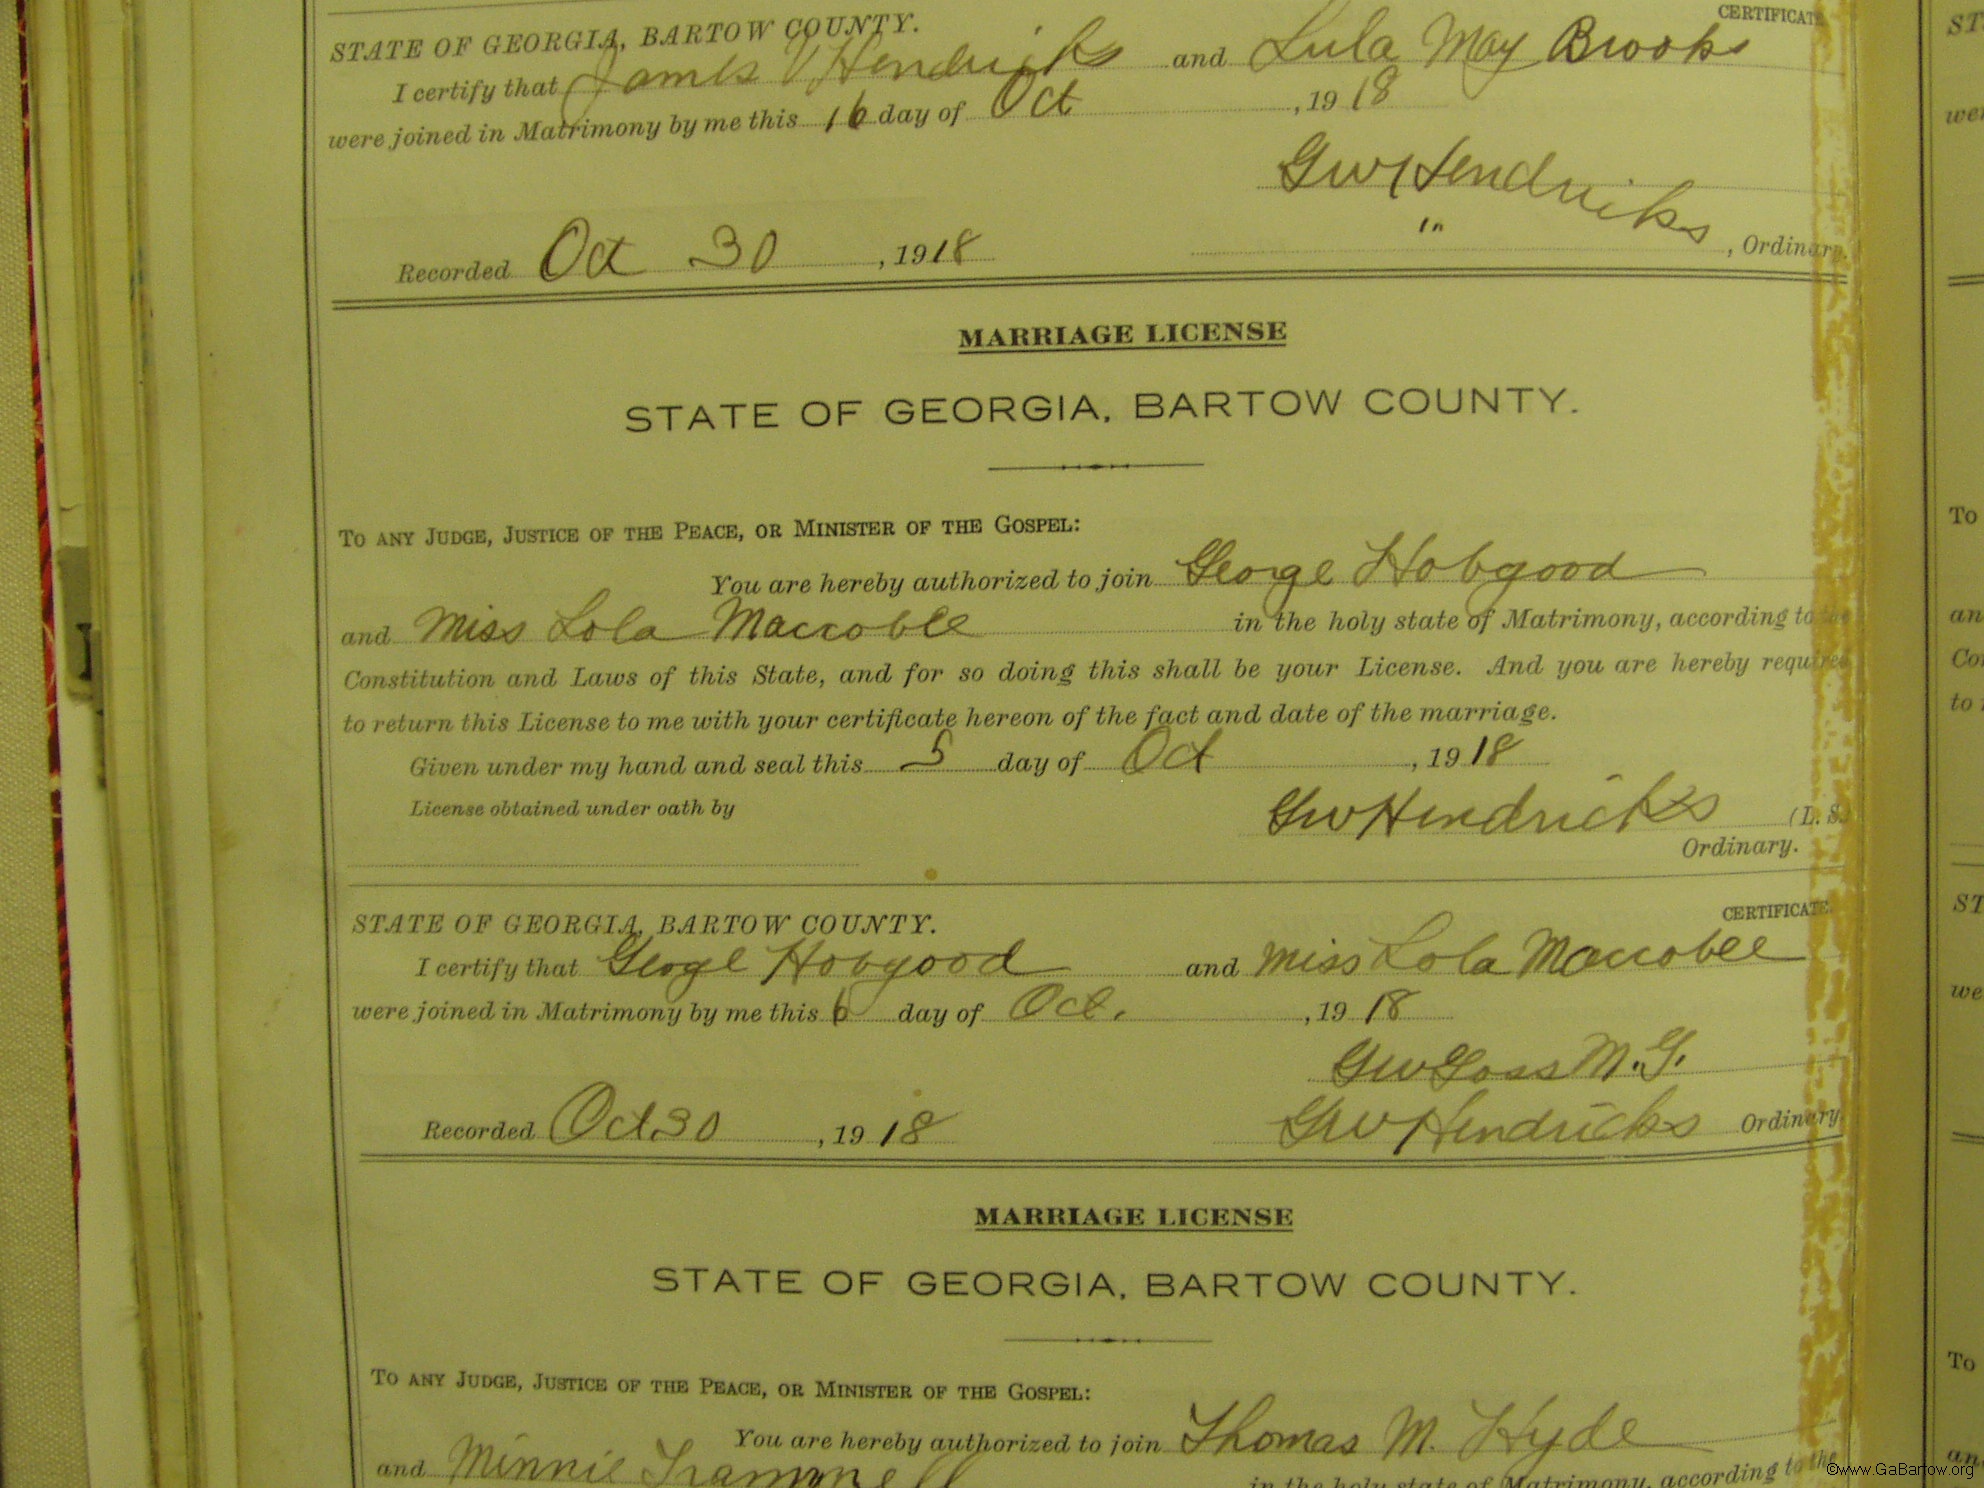 CERTIFICATE
STATE OF GEORGIA, BARTOW COUNTY.
I certify that James V Hendricks and Lula May Brooks
were joined in Matrimony by me this 16 day of Oct , 19 18
GW Hendricks
Recorded Oct 30 , 1918 " , Ordinary.
MARRIAGE LICENSE
STATE OF GEORGIA, BARTOW COUNTY.
TO ANY JUDGE, JUSTICE OF THE PEACE, OR MINISTER OF THE GOSPEL:
You are hereby authorized to join George Hobgood
and Miss Lola Maccobee in the holy state of Matrimony, according to the
Constitution and Laws of this State, and for so doing this shall be your License. And you are hereby required
to return this License to me with your certificate hereon of the fact and date of the marriage.
Given under my hand and seal this 5 day of Oct , 19 18
License obtained under oath by GW Hendricks (L. S.)
Ordinary.
CERTIFICATE.
STATE OF GEORGIA, BARTOW COUNTY.
I certify that George Hobgood and Miss Lola Maccobee
were joined in Matrimony by me this 6 day of Oct. , 19 18
GW Goss M.G.
Recorded Oct 30 , 19 18 GW Hendricks Ordinary.
MARRIAGE LICENSE
STATE OF GEORGIA, BARTOW COUNTY.
TO ANY JUDGE, JUSTICE OF THE PEACE, OR MINISTER OF THE GOSPEL:
You are hereby authorized to join Thomas M. Hyde
and Minnie Trammell in the holy state of Matrimony, according to the
©www.GaBartow.org